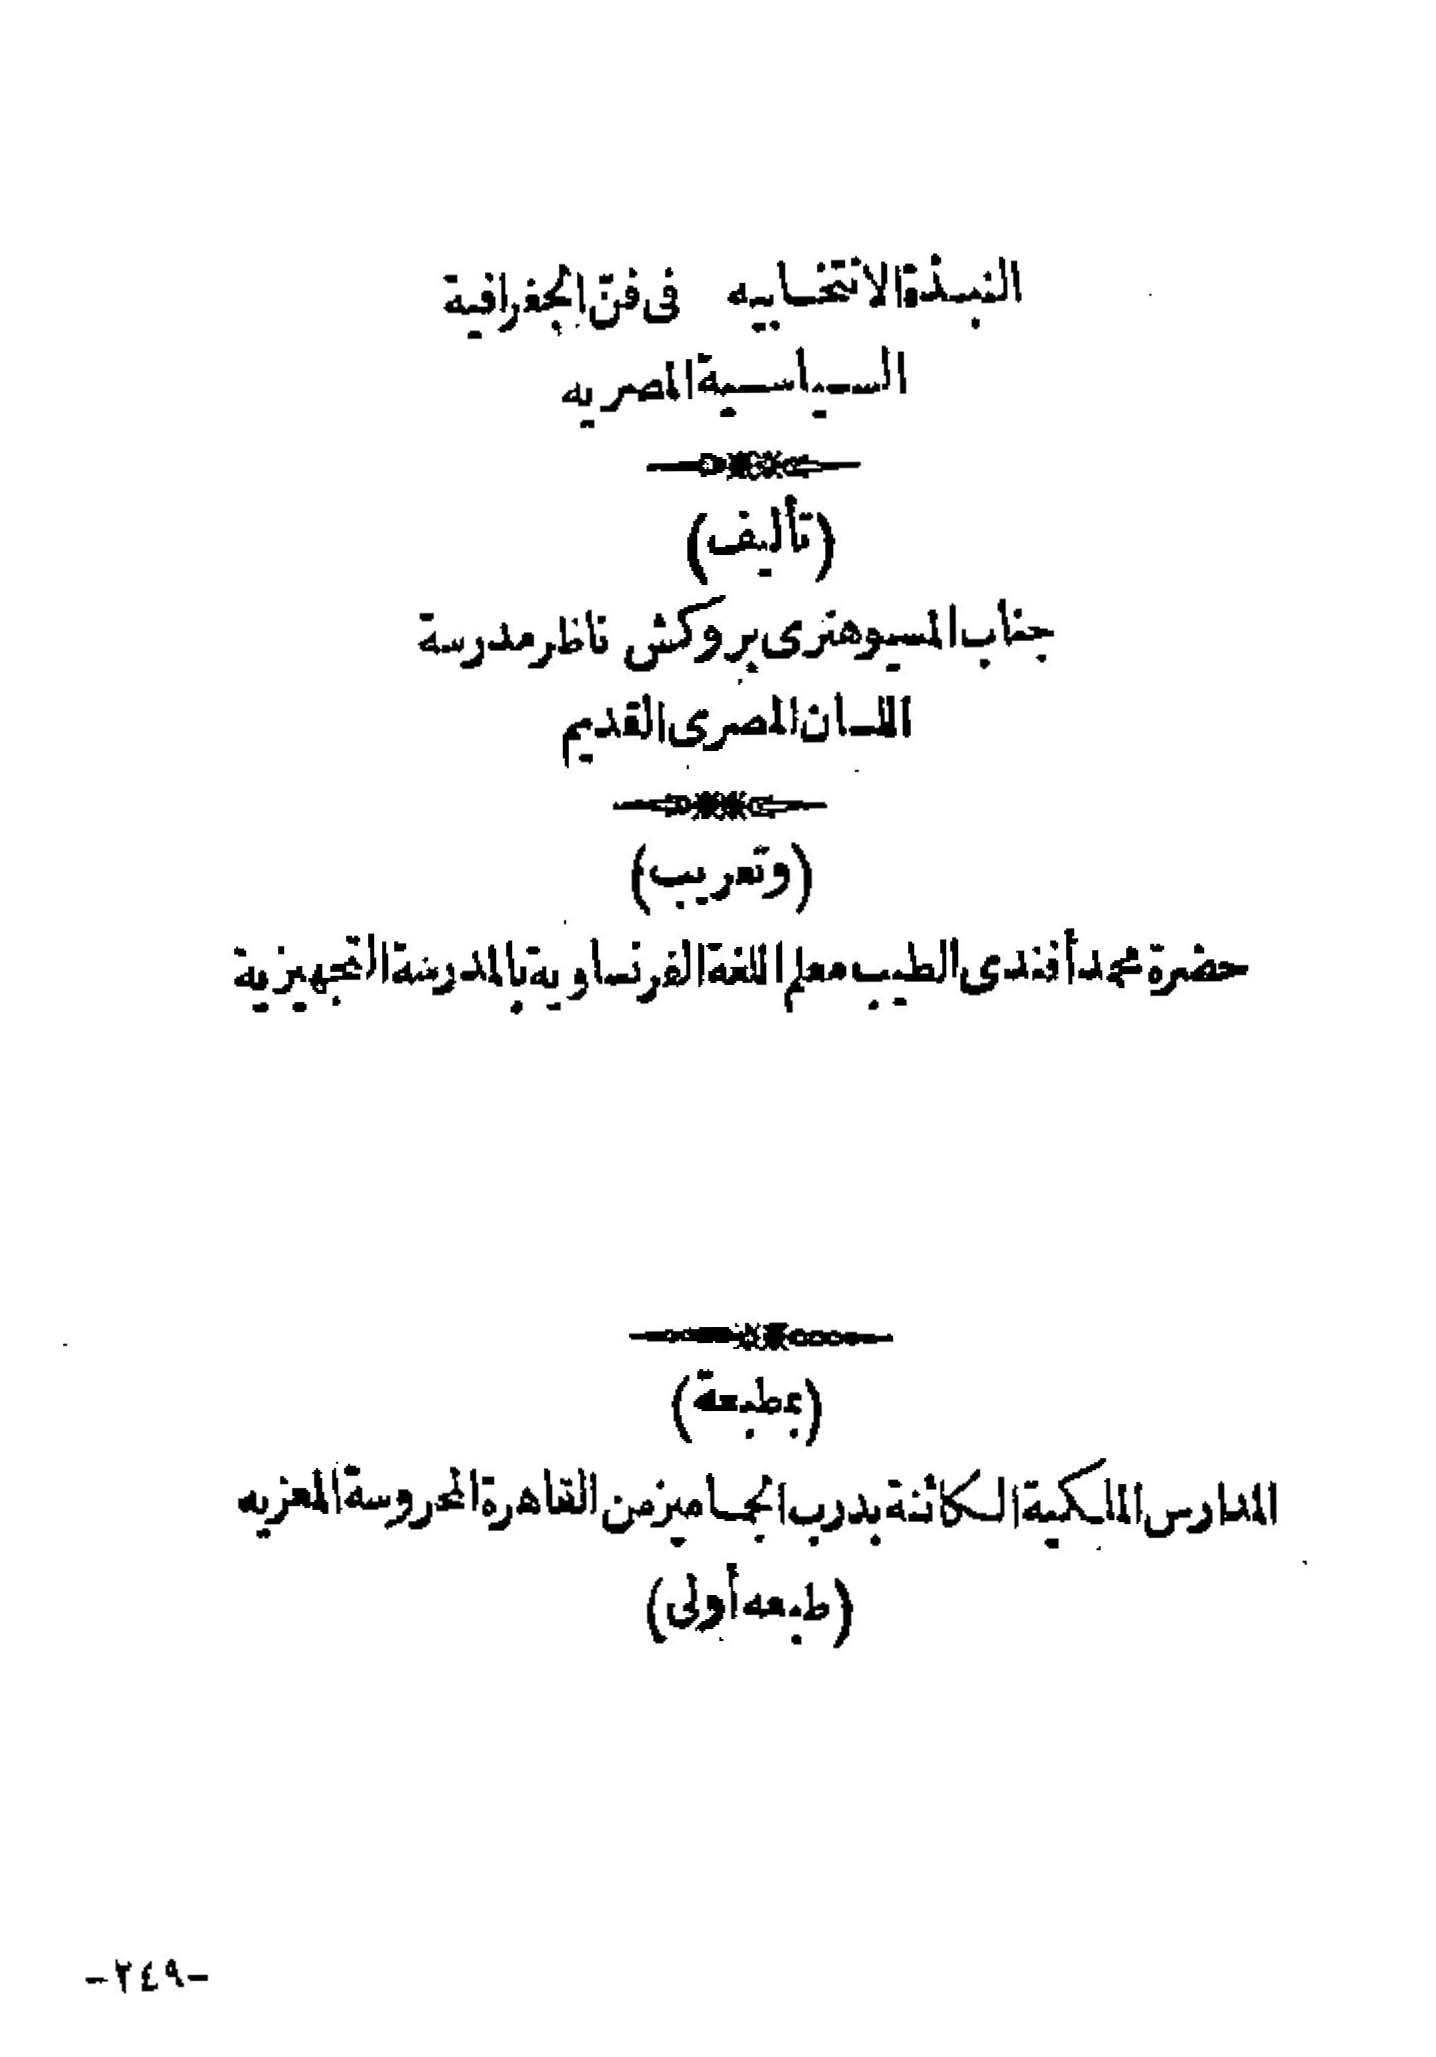 النبذة الانتخابيه فى فنّ الجغرافية
السياسية المصريه
(تأليف)
جناب المسيو هنرى بروكش ناظر مدرسة
اللسان المصرى القديم
(وتعريب)
حضرة محمد أفندى الطيب معلم اللغة الفرنساوية بالمدرسة التجهيزية
(بمطبعة)
المدارس الملكية الكائنة بدرب الجماميز من القاهرة المحروسة المعزيه
(طبعه أولى)
-٢٤٩-